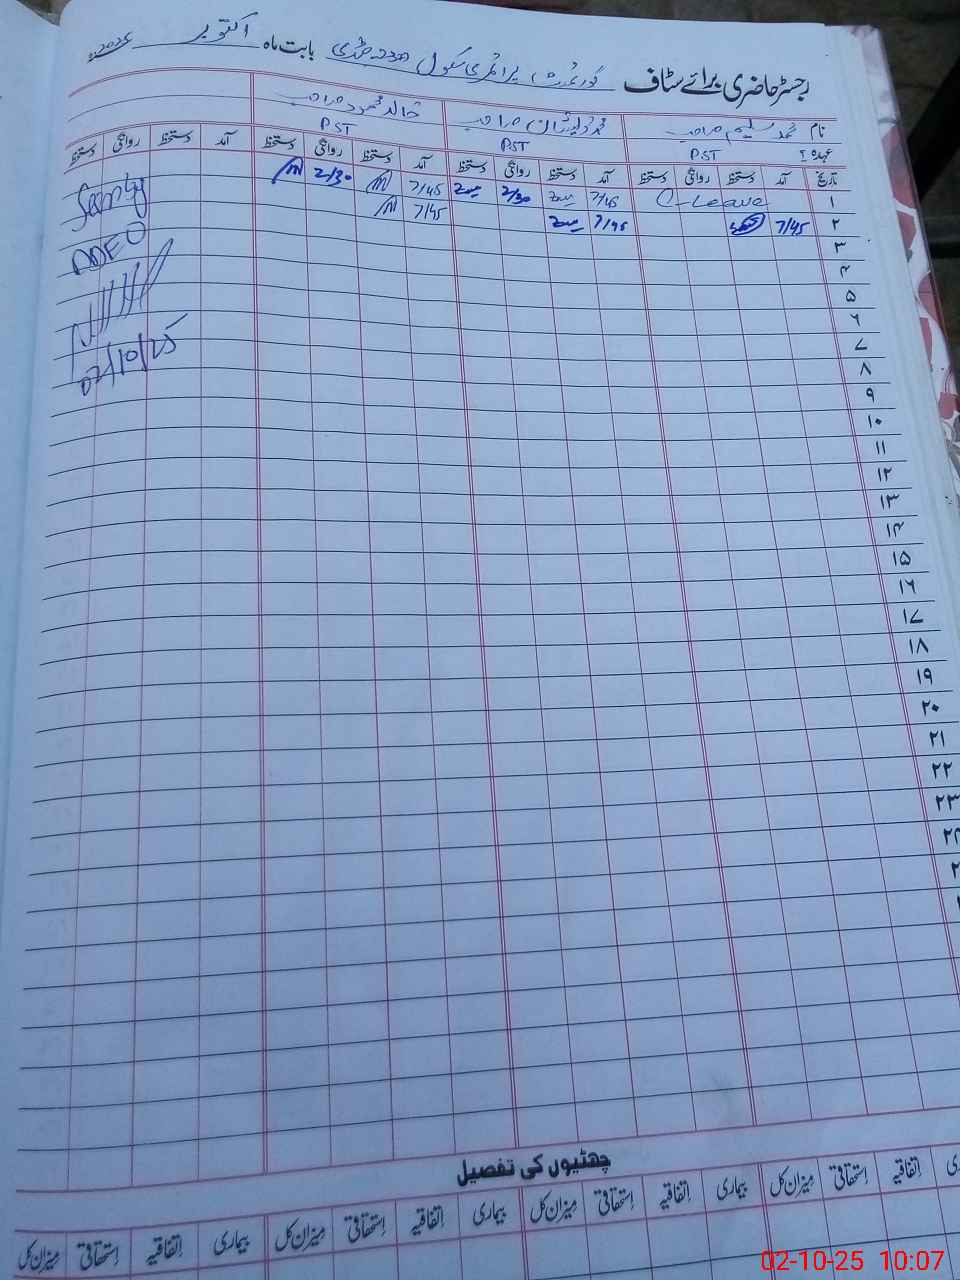 رجسٹر حاضری برائے سٹاف گورنمنٹ پرائمری سکول بابت ماہ اکتوبر
نام محمد سلیم صاحب صاحب خالد محمود صاحب
عہدہ PST PST PST
تاریخ آمد دستخط روانگی دستخط آمد دستخط روانگی دستخط آمد دستخط روانگی دستخط آمد دستخط روانگی دستخط
۱ C-Leave 7/45 2/30 7/45 2/30
۲ 7/45 7/45 7/45
۳
۴
۵
۶
۷
۸
۹
۱۰
۱۱
۱۲
۱۳
۱۴
۱۵
۱۶
۱۷
۱۸
۱۹
۲۰
۲۱
۲۲
۲۳
۲۴
Seen by
ADEO
02/10/25
چھٹیوں کی تفصیل
اتفاقیہ استحقاقی میزان کل بیماری اتفاقیہ استحقاقی میزان کل بیماری اتفاقیہ استحقاقی میزان کل بیماری اتفاقیہ استحقاقی میزان کل
02-10-25 10:07